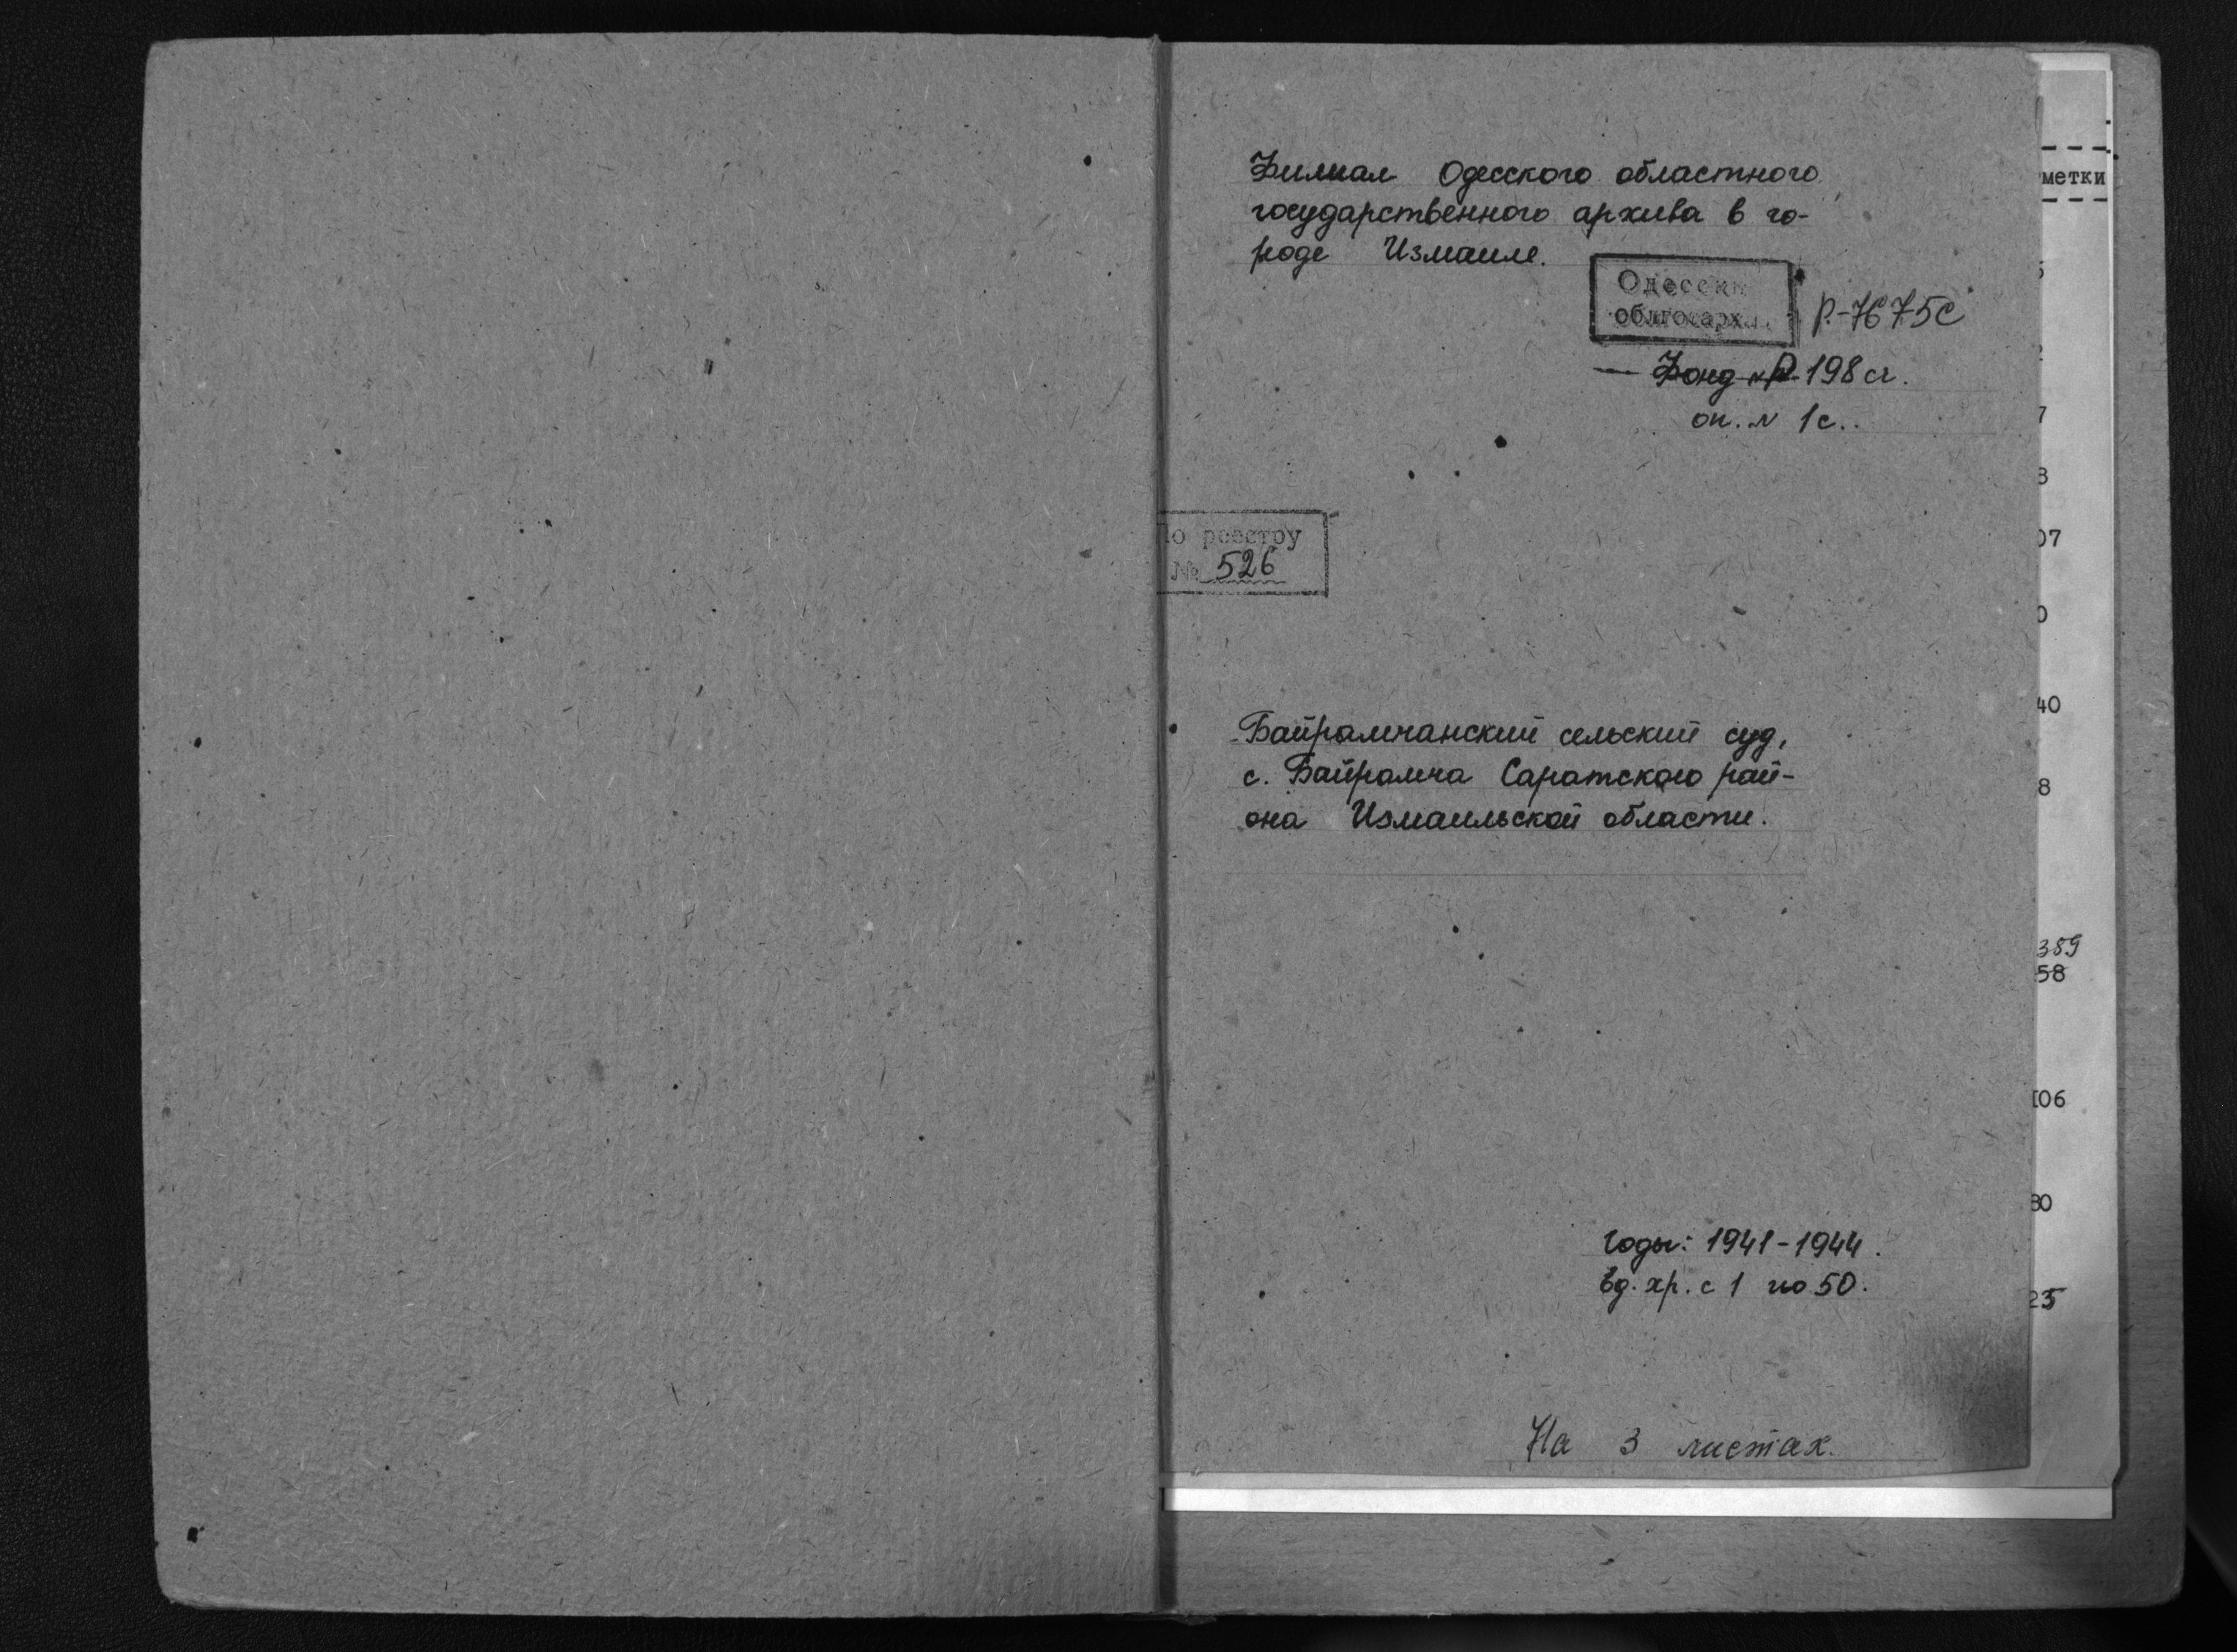 Филиал Одесского областного
государственного архива в го-
роде Измаиле.
Одесский
облгосарх.
Р.-7675с
Фонд №Р-198сг.
оп. № 1с.
По реестру
№ 526
Байрамчанский сельский суд,
с. Байрамча Саратского рай-
она Измаильской области.
Годы: 1941-1944.
Ед. хр. с 1 по 50.
На 3 листах.
метки
7
8
07
0
40
8
389
58
106
80
25